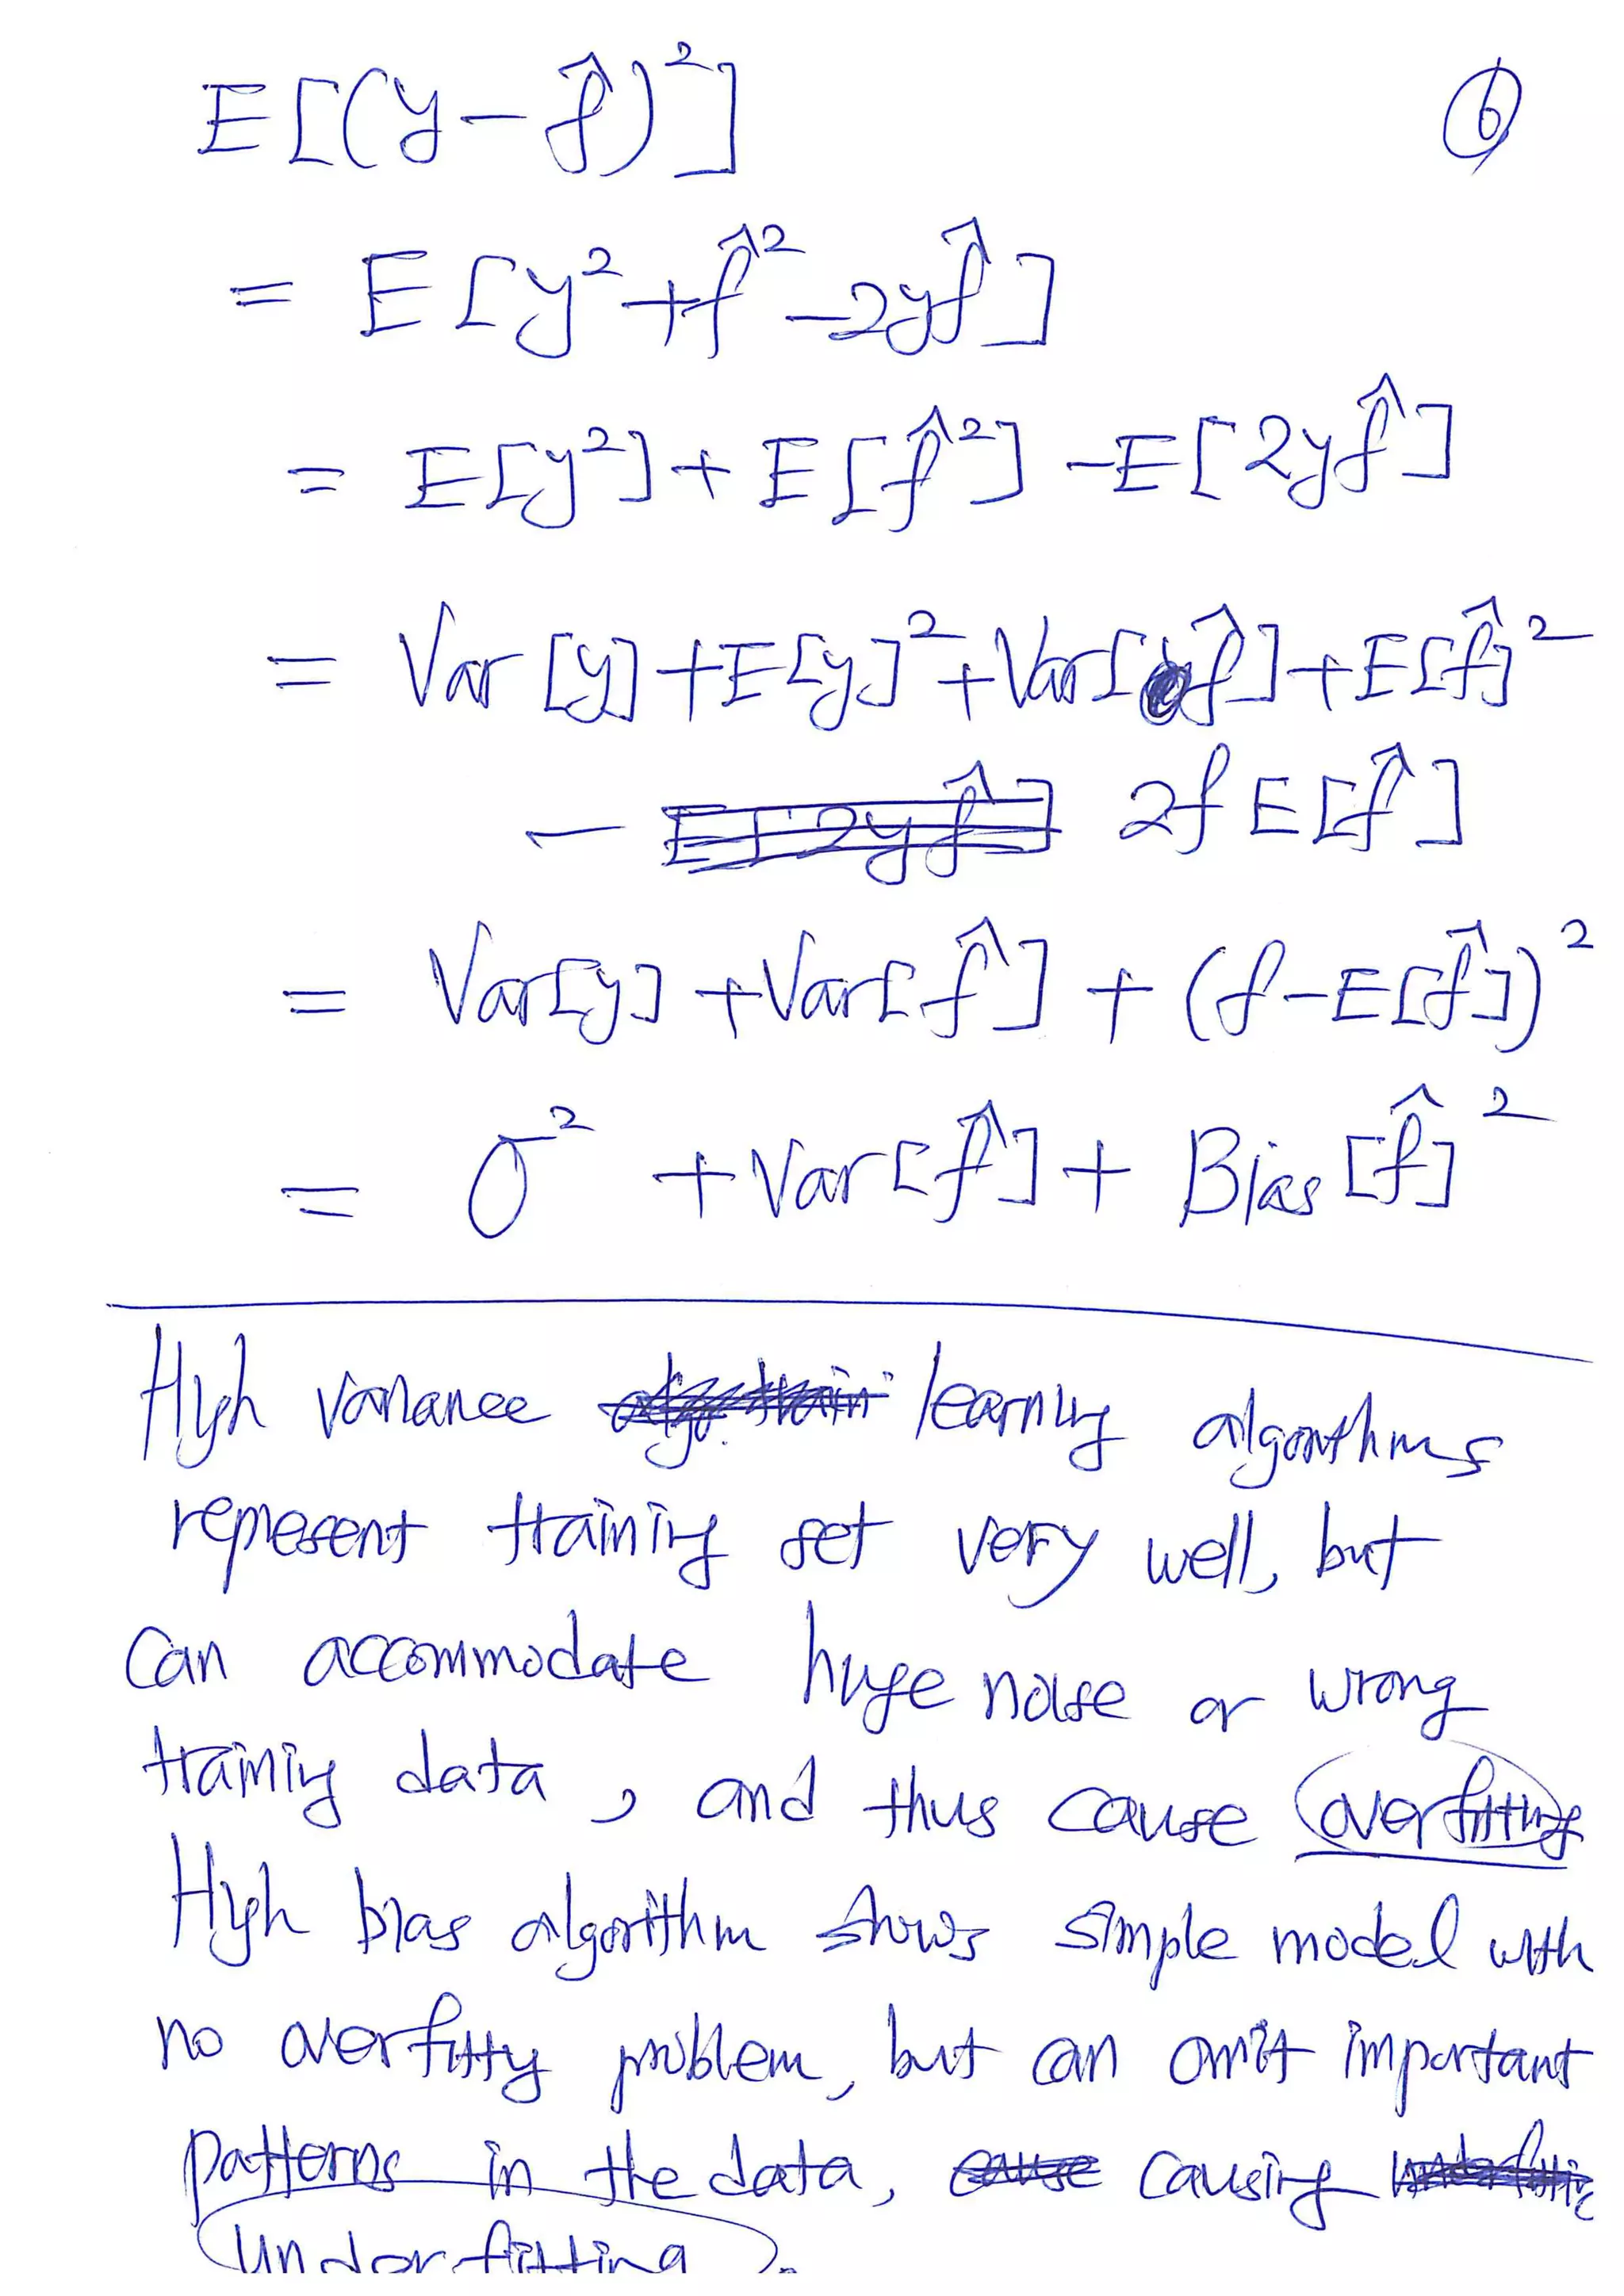 E[(y-f̂)²]
⑥
= E[y²+f̂²-2yf̂]
= E[y²]+E[f̂²]-E[2yf̂]
= Var[y]+E[y]²+Var[f̂]+E[f̂]²
- E[2yf̂] 2f E[f̂]
= Var[y]+Var[f̂]+(f-E[f̂])²
= σ²+Var[f̂]+Bias[f̂]²
High variance learning algorithms
represent training set very well, but
can accommodate huge noise or wrong
training data, and thus cause overfitting
High bias algorithm shows simple model with
no overfitting problem, but can omit important
patterns in the data, cause causing
underfitting.